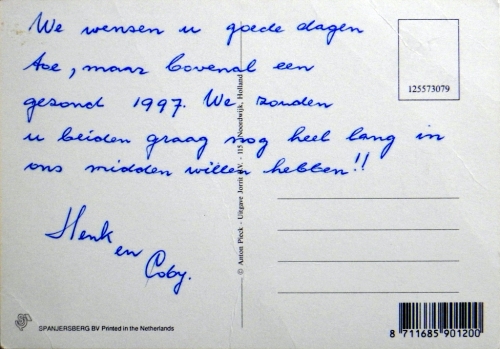 We wensen u goede dagen
toe, maar bovenal een
gezond 1997. We zouden
u beiden graag nog heel lang in
ons midden willen hebben!!
Henk
en
Coby.
125573079
© Anton Pieck - Uitgave Jorrit B.V. - 115 Noordwijk, Holland
SPANJERSBERG BV Printed in the Netherlands
8 711685 901200